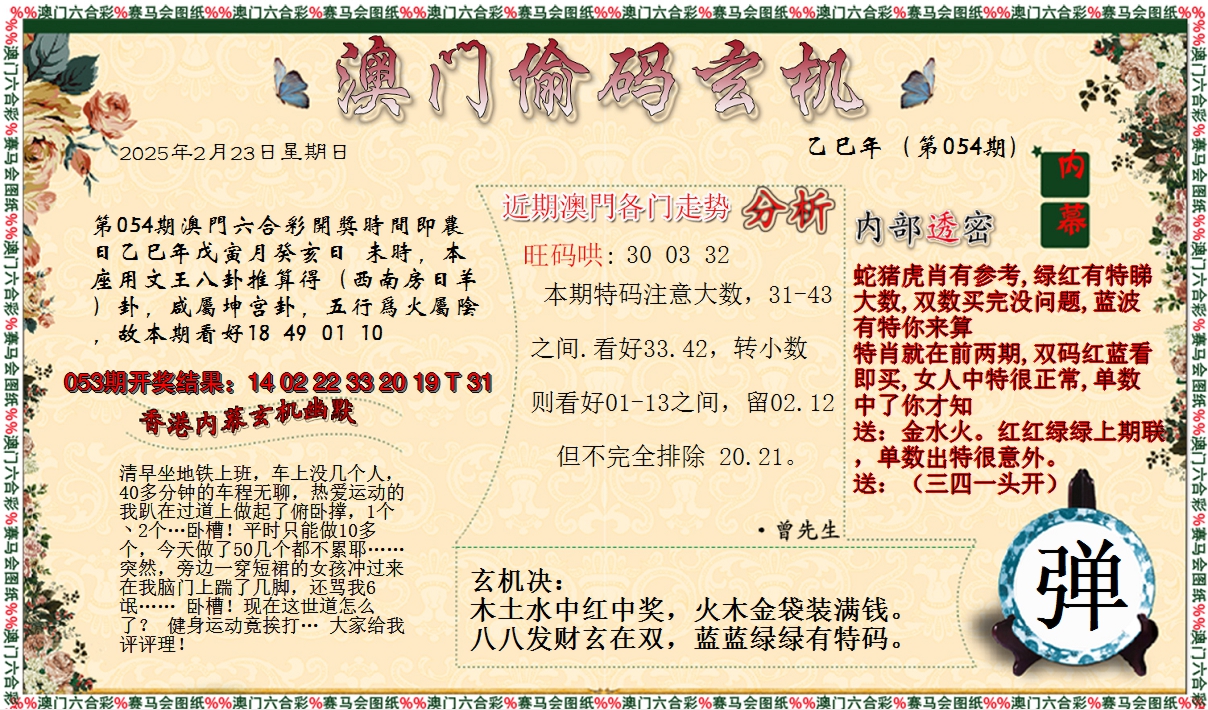 %%澳门六合彩%赛马会图纸%%澳门六合彩%赛马会图纸%%澳门六合彩%赛马会图纸%%澳门六合彩%赛马会图纸%%澳门六合彩%赛马会图纸%%澳门六合彩%赛马会图纸%%
澳门偷码玄机
2025年2月23日星期日
乙巳年（第054期）
内幕
第054期澳門六合彩開獎時間即農
日乙巳年戊寅月癸亥日 未時，本
座用文王八卦推算得（西南房日羊
）卦，咸屬坤宫卦，五行爲火屬陰
，故本期看好18 49 01 10
053期开奖结果：14 02 22 33 20 19 T 31
香港内幕玄机幽默
清早坐地铁上班，车上没几个人，
40多分钟的车程无聊，热爱运动的
我趴在过道上做起了俯卧撑，1个
丶2个…卧槽！平时只能做10多
个，今天做了50几个都不累耶……
突然，旁边一穿短裙的女孩冲过来
在我脑门上踹了几脚，还骂我6
氓…… 卧槽！现在这世道怎么
了？ 健身运动竟挨打… 大家给我
评评理！
近期澳門各门走势 分析
旺码哄: 30 03 32
本期特码注意大数，31-43
之间.看好33.42，转小数
则看好01-13之间，留02.12
但不完全排除 20.21。
·曾先生
内部透密
蛇猪虎肖有参考,绿红有特睇
大数,双数买完没问题,蓝波
有特你来算
特肖就在前两期,双码红蓝看
即买,女人中特很正常,单数
中了你才知
送：金水火。红红绿绿上期联
，单数出特很意外。
送：（三四一头开）
玄机决：
木土水中红中奖，火木金袋装满钱。
八八发财玄在双，蓝蓝绿绿有特码。
弹
%%澳门六合彩%赛马会图纸%%澳门六合彩%赛马会图纸%%澳门六合彩%赛马会图纸%%澳门六合彩%赛马会图纸%%澳门六合彩%赛马会图纸%%澳门六合彩%赛马会图纸%%